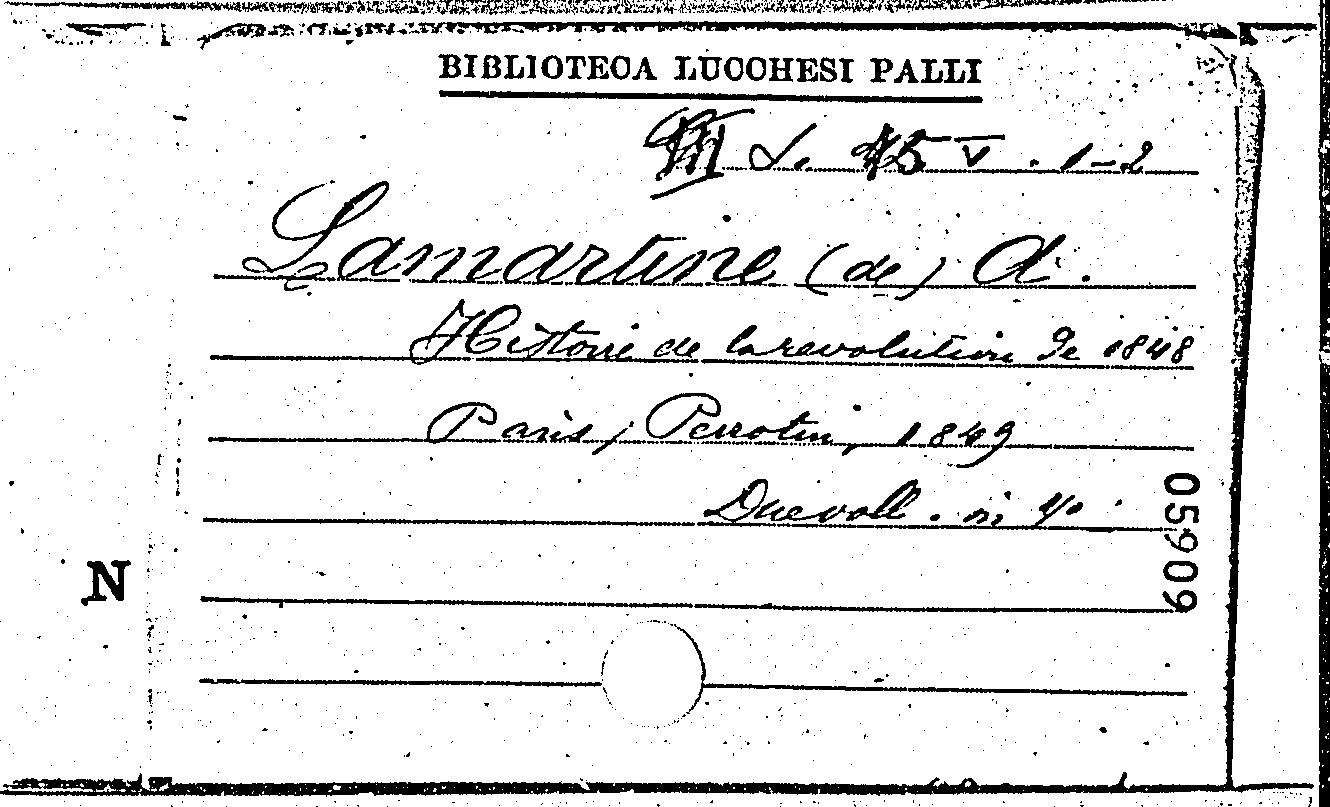 BIBLIOTECA LUCCHESI PALLI
L. 15 V . 1-2
Lamartine (de) A.
Histoire de la revolution de 1848
Paris, Perrotin, 1849
Due voll. in 4°
05909
N